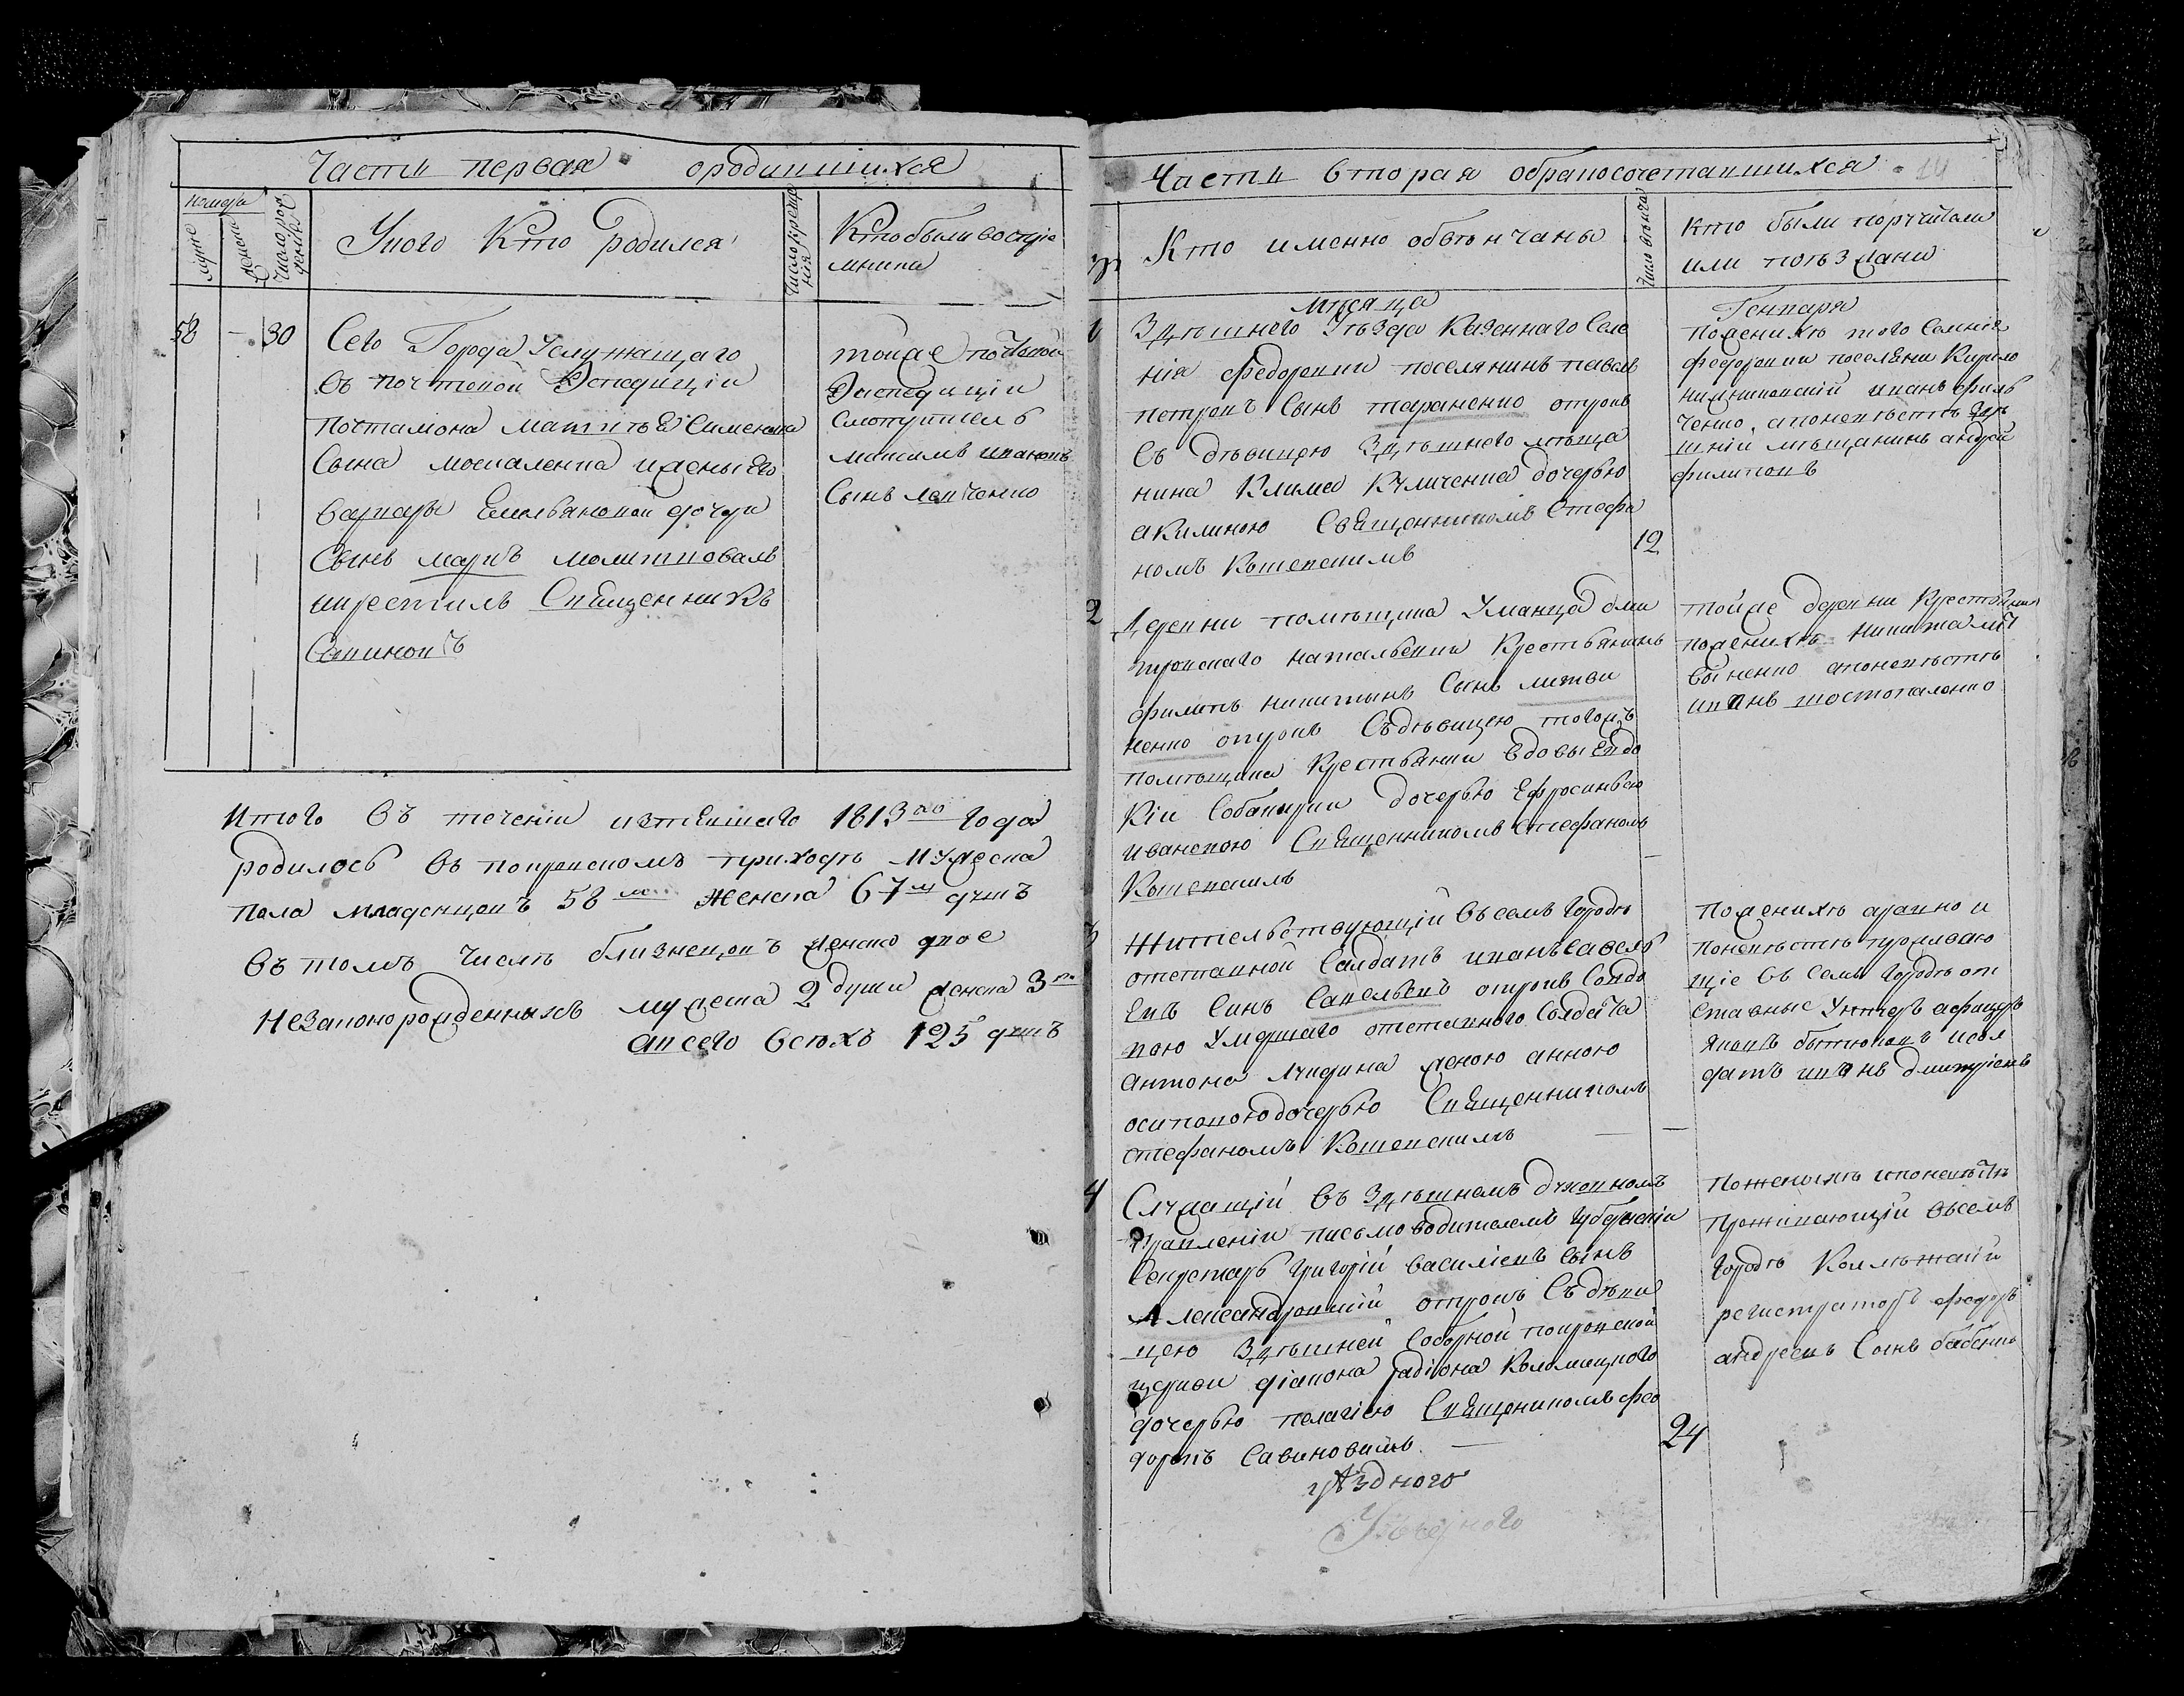 Часть первая о родившихся
Номера
мужс
женск
Число рож
денья
У кого Кто родился
Число креще
ния
Кто были воспріе
мники
58 — 30
Сего Города Услужащаго
въ почтовой Экспедиціи
почталиона Матвѣя Симеонова
Сына москаленка и жены его
варвары Емельяновой дочери
Сынъ маркъ молитвовалъ
и крестилъ Священникъ
Савиновъ
тойже почтовой
Экспедиціи
Смотритель
максимъ ивановъ
Сынъ левченко
Итого въ теченіи истекшаго 1813го года
родилось въ покровскомъ приходѣ мужеска
пола младенцевъ 58 женска 67 душъ
въ томъ числѣ близнецовъ женска двое
Незаконорожденныхъ мужеска 2 души женска 3
а всего всѣхъ 125 душъ
Часть вторая о бракосочетавшихся 14
Кто именно обвѣнчаны
Число вѣнча
кто были поручители
или поѣзжани
Мѣсяца Генваря
1
Здѣшнего Уѣзда Казеннаго Селе
нія федоровки поселянинъ павелъ
петровъ Сынъ тараненко отрокъ
Съ дѣвицею Здѣшнего мѣща
нина Клима Куличенка дочерью
акилиною Священникомъ Стефа
номъ Кошевскимъ
12
По женихѣ того Селенія
федоровки поселяни Кирило
иванъ филь
ченко, а по невѣстѣ Здѣ
шній мѣщанинъ андрей
филиповъ
2
Деревни помѣщика Уманца дми
тровскаго натальевки Крестьянинъ
филипъ никитинъ Сынъ литви
ненко отрокъ Съ дѣвицею тогожъ
помѣщика Крестьянки вдовы Евдо
кіи Собакарки дочерью Ефросиньею
ивановою Священникомъ Стефаномъ
Кошевскимъ —
тойже деревни Крестьяни
по женихѣ никита лит
виненко а по невѣстѣ
иванъ шостопаленко
3
Жительствующій въ семъ Городѣ
отставной Салдатъ иванъ Савель
евъ Синъ Савельевъ отрокъ Солда
кою Умершаго отставного Солдата
антона лущина женою анною
осиповою дочерью Священникомъ
стефаномъ Кошевскимъ — —
По женихѣ аравно и
по невѣстѣ проживаю
щіе въ семъ Городѣ от
ставные Унтеръ афицеръ
яковъ бытюковъ и сол
датъ иванъ дмитріевъ
4
Служащій въ Здѣшнемъ духовномъ
правленіи письмоводителемъ Губернскій
Секретарь Григорій василіевъ сынъ
Александровскій отрокъ Съ дѣви
цею Здѣшней Соборной покровской
церкви діакона радіона Коломицкого
дочерью пелагіею Священникомъ фео
доромъ Савиновимъ. —
24
По женихѣ и по невѣстѣ
Проживающій въ семъ
Городѣ Коллежскій
регистраторъ федоръ
андреевъ Сынъ бабенко
уѣздного